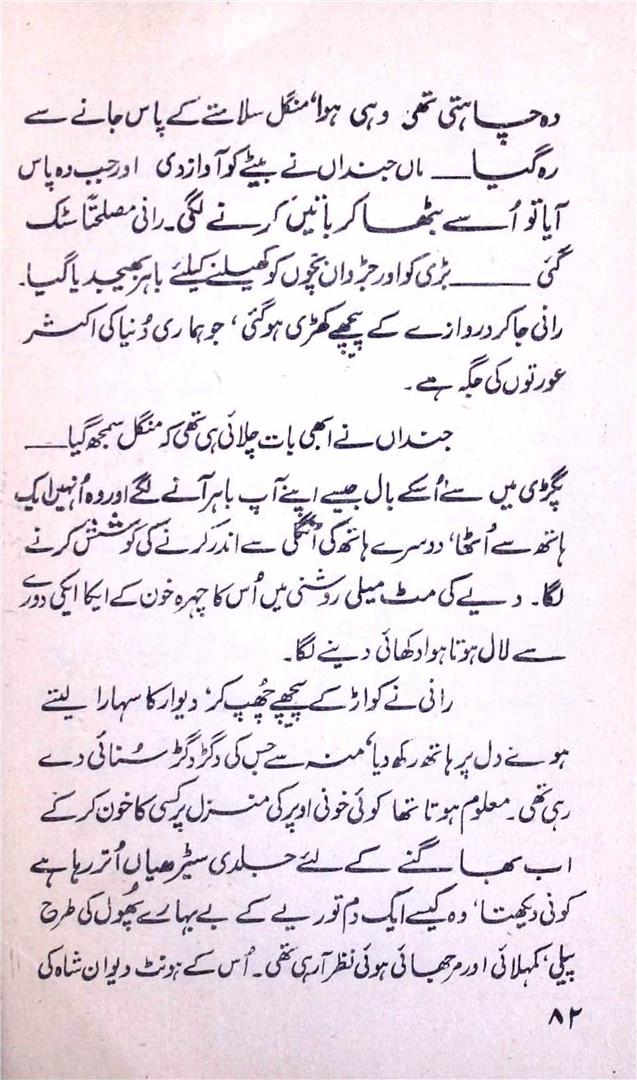 وہ چاہتی تھی وہی ہوا، منگل سلامتے کے پاس جانے سے
رہ گیا ــــ ماں جنداں نے بیٹے کو آواز دی اور جب وہ پاس
آیا تو اُسے بٹھا کر باتیں کرنے لگی۔ رانی مصلحتاً سٹک
گئی ــــــــ بڑی کو اور جڑواں بچوں کو کھیلنے کیلئے باہر بھیجد یا گیا۔
رانی جا کر دروازے کے پیچھے کھڑی ہو گئی، جو ہماری دُنیا کی اکثر
عورتوں کی جگہ ہے۔
جنداں نے ابھی بات چلائی ہی تھی کہ منگل سمجھ گیا ــــ
پگڑی میں سے اُسکے بال جیسے اپنے آپ باہر آنے لگے اور وہ اُنہیں ایک
ہاتھ سے اُٹھا، دوسرے ہاتھ کی اُنگلی سے اندر کرنے کی کوشش کرنے
لگا۔ دیے کی مٹ میلی روشنی میں اُس کا چہرہ خون کے ایکا ایکی دورے
سے لال ہوتا ہوا دکھائی دینے لگا۔
رانی نے کواڑ کے پیچھے چُھپ کر، دیوار کا سہارا لیتے
ہوئے دل پر ہاتھ رکھ دیا، منہ سے جس کی دگڑ دگڑ سُنائی دے
رہی تھی۔ معلوم ہوتا تھا کوئی خونی اوپر کی منزل پر کسی کا خون کر کے
اب بھاگنے کے لئے جلدی سیڑھیاں اُتر رہا ہے
کوئی دیکھتا، وہ کیسے ایک دم توریے کے بے بہارے پُھول کی طرح
پیلی، کمہلائی اور مرجھائی ہوئی نظر آرہی تھی۔ اُس کے ہونٹ دیوان شاہ کی
۸۲